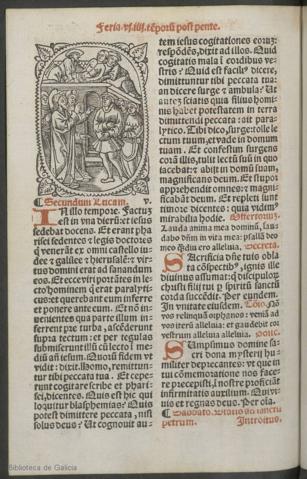 Feria .vj. iiij. tẽporũ post pente.
¶ Secundum Lucam. v.
IN illo tempore. Factuʒ
est in vna dierũ: et iesus
sedebat docens. Et erant pha
risei sedentes ⁊ legis doctores
q̃ venerãt ex omni castello iu-
dee ⁊ galilee ⁊ hierusalẽ: ⁊ vir-
tus domini erat ad sanandum
eos. Et ecce viri portãtes in le-
cto hominem q̃ erat paralyti-
cus: et querebant eum inferre
et ponere ante eum. Et nõ in-
uenientes qua parte illum in-
ferrent pre turba, ascẽderunt
supra tectum: et per tegulas
submiserunt illũ cũ lecto ĩ me-
diũ añ iesum. Quorũ fidem vt
vidit: dixit. Homo, remittun-
tur tibi peccata tua. Et cepe-
runt cogitare scribe et phari-
sei, dicentes. Quis est hic qui
loquitur blasphemias? Quis
potest dimittere peccata, nisi
solus deus? Ut cognouit au-
tem iesus cogitationes eoruʒ:
respõdẽs, dixit ad illos. Quid
cogitatis mala ĩ cordibus ve-
stris? Quid est facilius dicere,
dimittuntur tibi peccata tua:
an dicere surge ⁊ ambula? Ut
auteʒ sciatis quia filius homi-
nis habet potestatem in terra
dimittendi peccata: ait para-
lytico. Tibi dico, surge: tolle le-
ctum tuum, et vade in domum
tuam. Et confestim surgens
corã illis, tulit lectũ suũ in quo
iacebat: ⁊ abijt in domũ suam,
magnificans deum. Et stupor
apprehendit omnes: ⁊ magni-
ficabãt deum. Et repleti sunt
timore dicentes: quia vidim⁹
mirabilia hodie. Offertoriuʒ.
Lauda anima mea dominũ, lau-
dabo dñm in vita mea: psallã deo
meo q̃diu ero alleluia. Secreta.
SAcrificia dñe tuis obla
ta cõspectib⁹, ignis ille
diuinus assumat: q̃ discipuloꝝ
christi filij tui p spiritũ sanctũ
corda succẽdit. Per eundem.
In vnitate eiusdem. Cõio. Nõ
vos relinquã orphanos: veniã ad
vos iterũ alleluia: et gaudebit cor
vestrum alleluia alleluia. Postcõ.
SUmpsimus domine sa-
cri dona mysterij hu-
militer deprecantes: vt que in
tui cõmemorationẽ nos face-
re precepisti, ĩ nostre proficiãt
infirmitatis auxilium. Qui vi-
uis et regnas deus. Per oĩa.
petrum. Introitus.
Biblioteca de Galicia